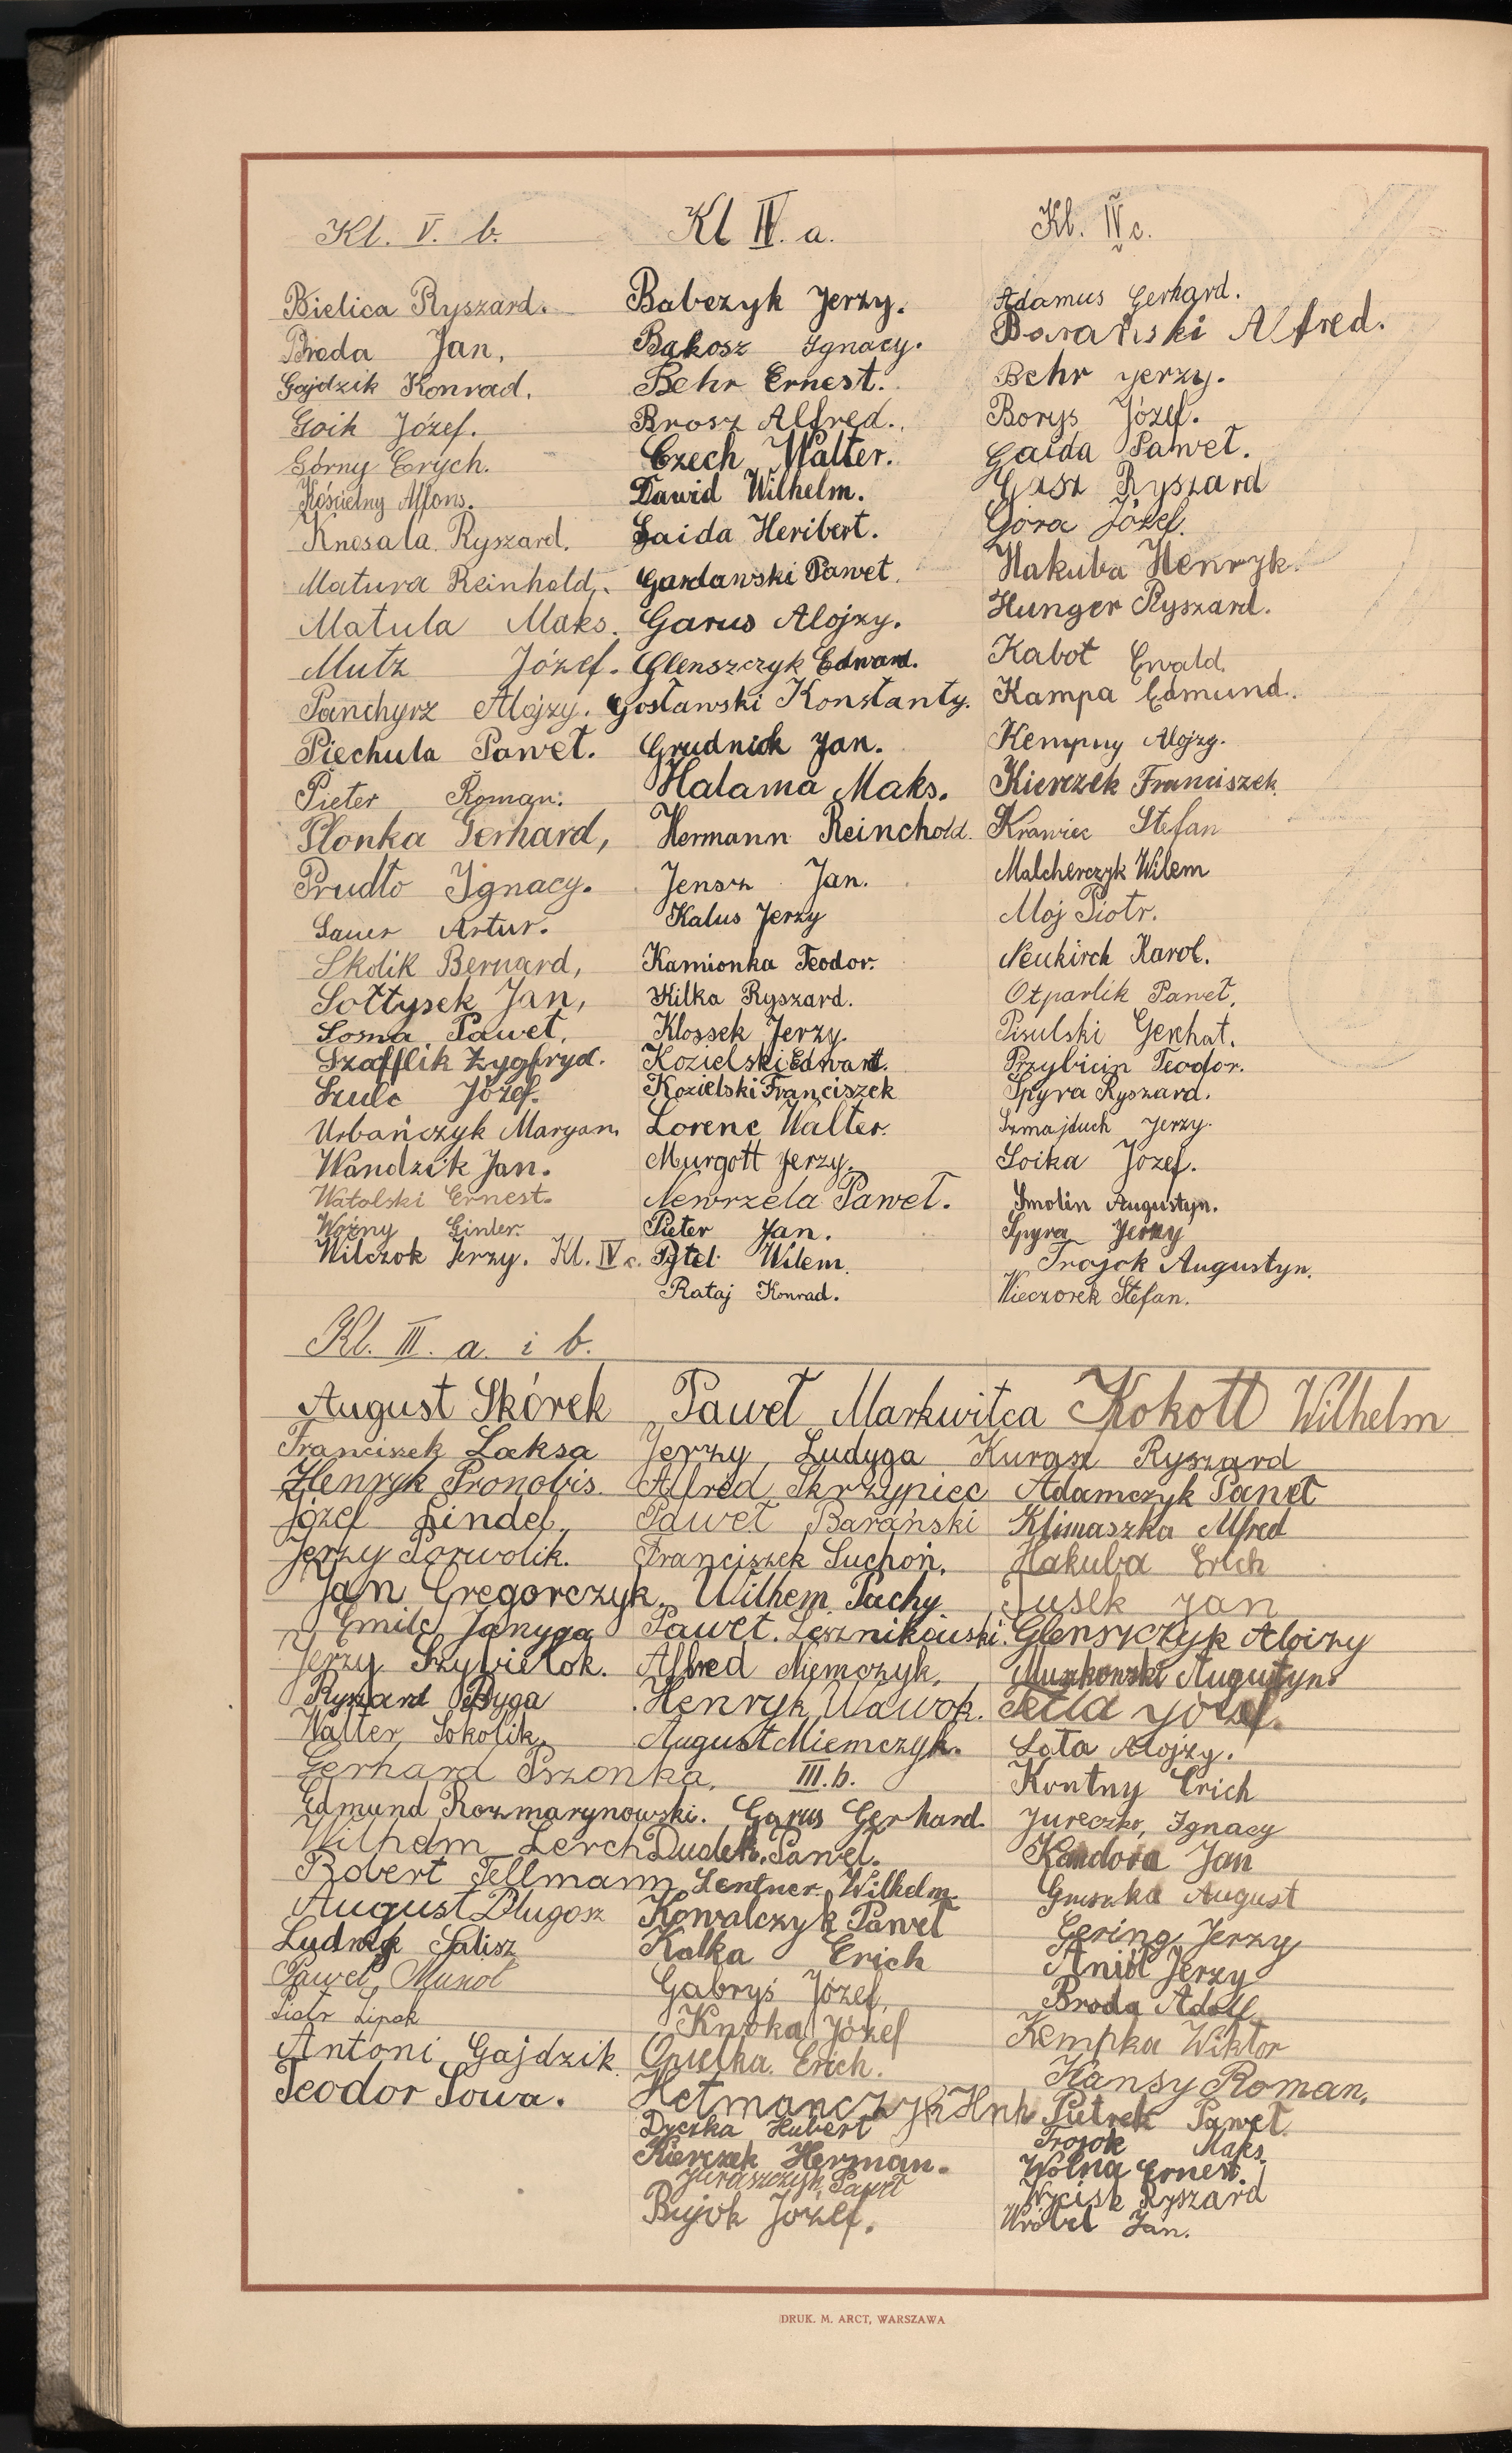 Kl. V. b.
Bielica Ryszard.
Breda Jan,
Gajdzik Konrad.
Goik Józef.
Górny Erych.
Kościelny Alfons.
Knosala Ryszard.
Matura Reinhold.
Matula Maks.
Mutz Józef.
Panchyrz Alojzy.
Piechula Paweł.
Pieter Roman.
Plonka Gerhard,
Prudło Ignacy.
Sauer Artur.
Skolik Bernard,
Sołtysek Jan,
Sosna Paweł,
Szafflik Zygfryd.
Szulc Józef.
Urbańczyk Maryan.
Wandzik Jan.
Watolski Ernest.
Woźny Ginter.
Wilczok Jerzy. Kl. IV c.
Kl IV. a.
Babczyk Jerzy.
Bąkosz Ignacy.
Behr Ernest.
Brosz Alfred.
Czech Walter.
Dawid Wilhelm.
Gaida Heribert.
Gardawski Paweł.
Garus Alojzy.
Glenszczyk Edward.
Gosławski Konstanty.
Grudniok Jan.
Halama Maks.
Hermann Reinchold.
Jensz Jan.
Kalus Jerzy
Kamionka Teodor.
Kilka Ryszard.
Klossek Jerzy.
Kozielski Edward.
Kozielski Franciszek
Lorenc Walter.
Murgott Jerzy.
Newrzela Paweł.
Pieter Jan.
Pytel Wilem.
Rataj Konrad.
Kl. IV c.
Adamus Gerhard.
Barański Alfred.
Behr Jerzy.
Borys Józef.
Gaida Paweł.
Gasz Ryszard
Góra Józef.
Hakuba Henryk.
Hunger Ryszard.
Kabot Ewald.
Kampa Edmund.
Kempny Alojzy.
Kierczek Franciszek
Krawiec Stefan
Malcherczyk Wilem
Moj Piotr.
Neukirch Karol.
Otparlik Paweł,
Pisulski Gerhat.
Przybicin Teodor.
Spyra Ryszard.
Szmajduch Jerzy.
Soika Józef.
Smolin Augustyn.
Spyra Jerzy
Trojok Augustyn.
Wieczorek Stefan.
Kl. III. a. i b.
August Skórek
Franciszek Laksa
Henryk Pronobis.
Józef Lindel,
Jerzy Porwolik.
Jan Gregorczyk.
Emil Janyga
Jerzy Szybielok.
Ryszard Dyga
Walter Sokolik.
Gerhard Pszonka,
Edmund Rozmarynowski.
Wilhelm Lerch
Robert Tellmann
August Długosz
Ludwig Salisz
Paweł Musiol
Piotr Lipok
Antoni Gajdzik
Teodor Sowa.
Paweł Markwitca
Jerzy Ludyga
Alfred Skrzypiec
Paweł Barański
Franciszek Suchoń,
Wilhem Pachy
Paweł. Leśnikowski.
Alfred Niemczyk,
Henryk Wawok.
August Niemczyk.
III. b.
Garus Gerhard.
Dudek Paweł.
Lentner Wilhelm
Kowalczyk Paweł
Kalka Erich
Gabryś Józef,
Knoka Józef
Opiełka Erich.
Hetmanczyk Hnh
Dyczka Hubert
Kierczek Herman.
Juraszczyk Paweł
Bujok Józef.
Kokott Wilhelm
Kurasz Ryszard
Adamczyk Paweł
Klimaszka Alfred
Hakuba Erich
Jusek Jan
Glenszczyk Aloizy
Muszkowski Augustyn.
Tella Józef.
Lota Alojzy.
Kontny Erich
Jureczko, Ignacy
Kandora Jan
August
Gering Jerzy
Anioł Jerzy
Broda Adolf
Kempka Wiktor
Kansy Roman.
Pietrek Paweł.
Trojok Maks.
Wolna Ernest.
Wycisk Ryszard
Wróbel Jan.
DRUK. M. ARCT, WARSZAWA